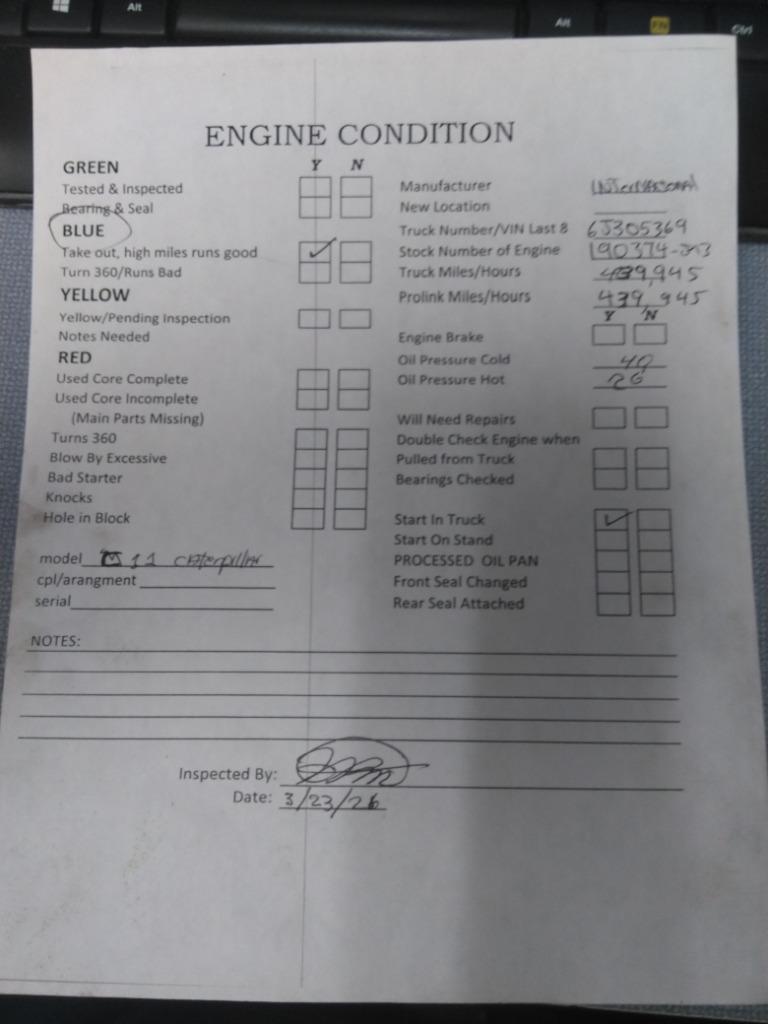 Alt
Alt
FN
Ctrl
ENGINE CONDITION
GREEN Y N
Tested & Inspected
Bearing & Seal
BLUE
Take out, high miles runs good ✓
Turn 360/Runs Bad
YELLOW
Yellow/Pending Inspection
Notes Needed
RED
Used Core Complete
Used Core Incomplete
(Main Parts Missing)
Turns 360
Blow By Excessive
Bad Starter
Knocks
Hole in Block
model 11 Caterpillar
cpl/arangment
serial
Manufacturer International
New Location
Truck Number/VIN Last 8 6J305369
Stock Number of Engine 190374-
Truck Miles/Hours 439,945
Prolink Miles/Hours 439,945
Y N
Engine Brake
Oil Pressure Cold 40
Oil Pressure Hot 26
Will Need Repairs
Double Check Engine when
Pulled from Truck
Bearings Checked
Start In Truck ✓
Start On Stand
PROCESSED OIL PAN
Front Seal Changed
Rear Seal Attached
NOTES:
Inspected By:
Date: 3/23/26